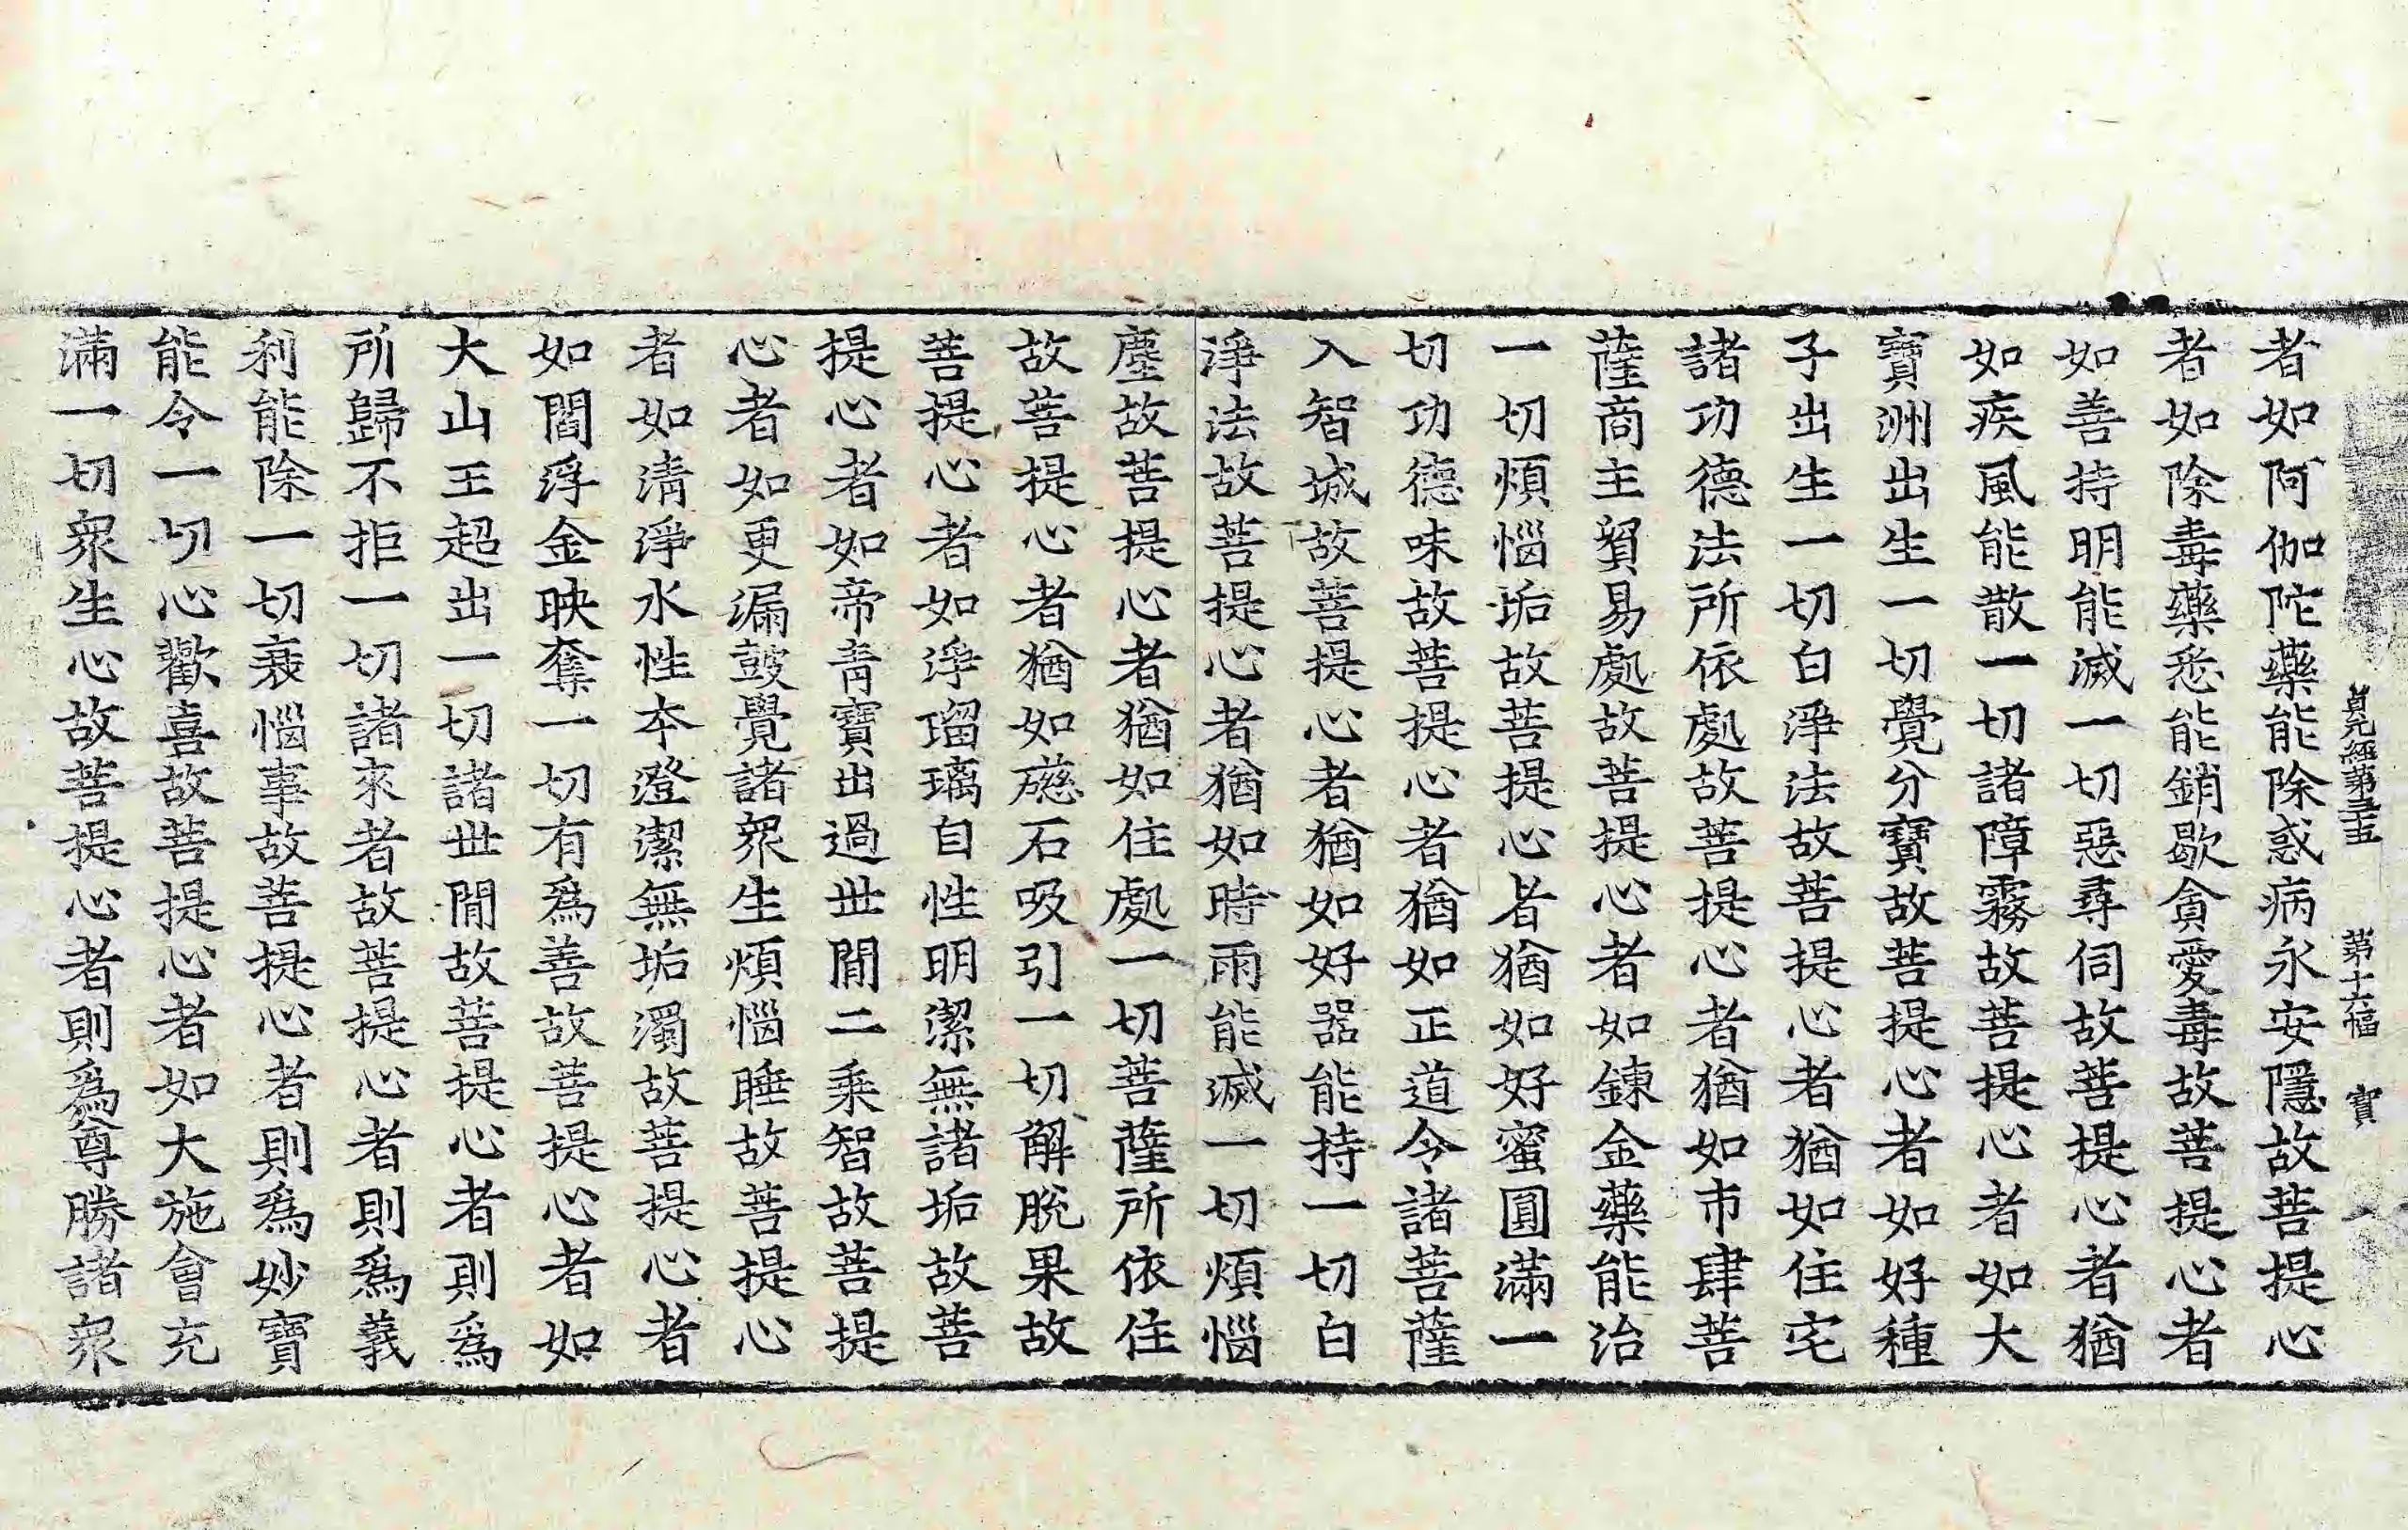 貞元經第三十五 第十六幅 寶
者如阿伽陀藥能除惑病永安隱故菩提心
者如除毒藥悉能銷歇貪愛毒故菩提心者
如善持明能滅一切惡尋伺故菩提心者猶
如疾風能散一切諸障霧故菩提心者如大
寶洲出生一切覺分寶故菩提心者如好種
子出生一切白淨法故菩提心者猶如住宅
諸功德法所依處故菩提心者猶如市肆菩
薩商主貿易處故菩提心者如鍊金藥能治
一切煩惱垢故菩提心者猶如好蜜圓滿一
切功德味故菩提心者猶如正道令諸菩薩
入智城故菩提心者猶如好器能持一切白
淨法故菩提心者猶如時雨能滅一切煩惱
塵故菩提心者猶如住處一切菩薩所依住
故菩提心者猶如礠石吸引一切解脫果故
菩提心者如淨瑠璃自性明潔無諸垢故菩
提心者如帝青寶出過世閒二乘智故菩提
心者如更漏鼓覺諸衆生煩惱睡故菩提心
者如清淨水性本澄潔無垢濁故菩提心者
如閻浮金映奪一切有爲善故菩提心者如
大山王超出一切諸世閒故菩提心者則爲
所歸不拒一切諸來者故菩提心者則爲義
利能除一切衰惱事故菩提心者則爲妙寶
能令一切心歡喜故菩提心者如大施會充
滿一切衆生心故菩提心者則爲尊勝諸衆